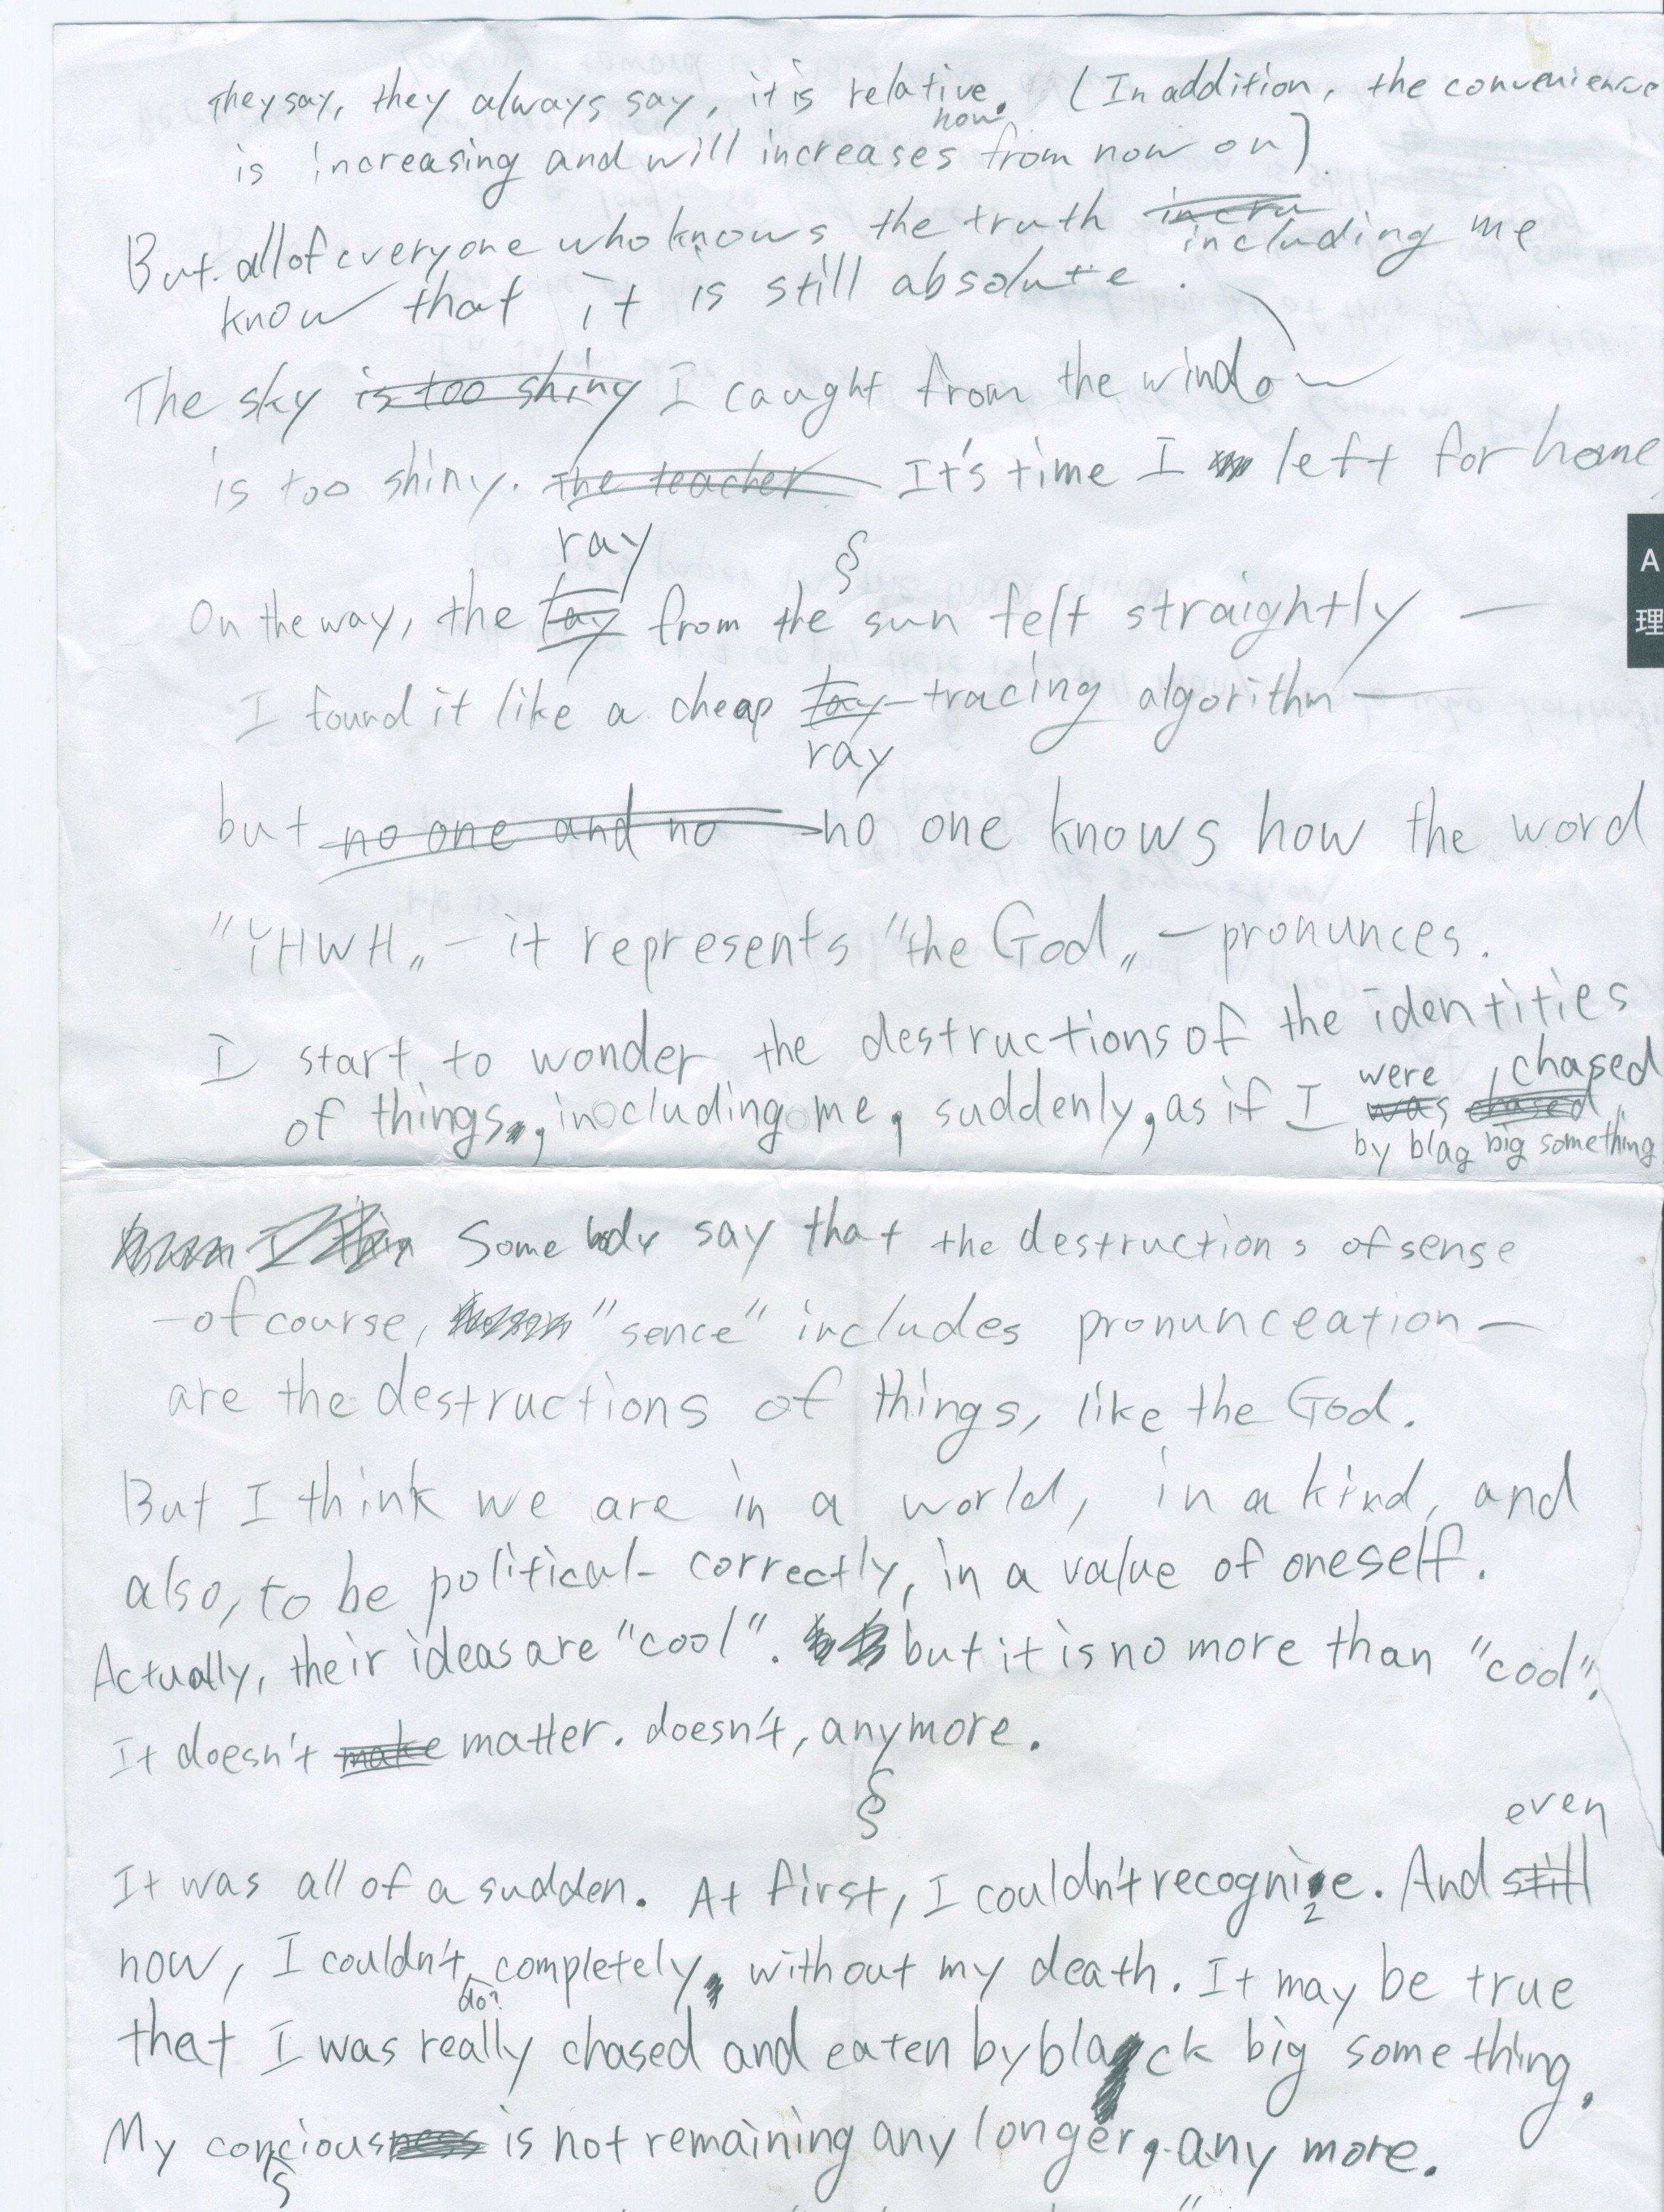 They say, they always say, it is relative. (In addition, the convenience
now
is increasing and will increases from now on)
But all of everyone who knows the truth incru including me
know that it is still absolute.
The sky is too shiny I caught from the window
is too shiny. The teacher It's time I left for home
ray
§
On the way, the tay from the sun felt straightly —
I found it like a cheap tay-tracing algorithm —
ray
but no one and no no one knows how the word
"YHWH„ — it represents "the God„ — pronunces.
I start to wonder the destructions of the identities
were chased
of things, including me, suddenly, as if I was chased
by blag big something
I thin Some body say that the destructions of sense
— of course, "sence" includes pronunceation —
are the destructions of things, like the God.
But I think we are in a world, in a kind, and
also, to be political-correctly, in a value of oneself.
Actually, their ideas are "cool". but it is no more than "cool".
It doesn't make matter. doesn't, anymore.
§
even
It was all of a sudden. At first, I couldn't recognize. And still
now, I couldn't completely, without my death. It may be true
do?
that I was really chased and eaten by black big something.
My conciousness is not remaining any longer, any more.
s
A
理